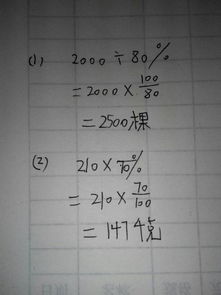 (1) 2000 ÷ 80%
= 2000 × 100/80
= 2500棵
(2) 210 × 70%
= 210 × 70/100
= 147千克